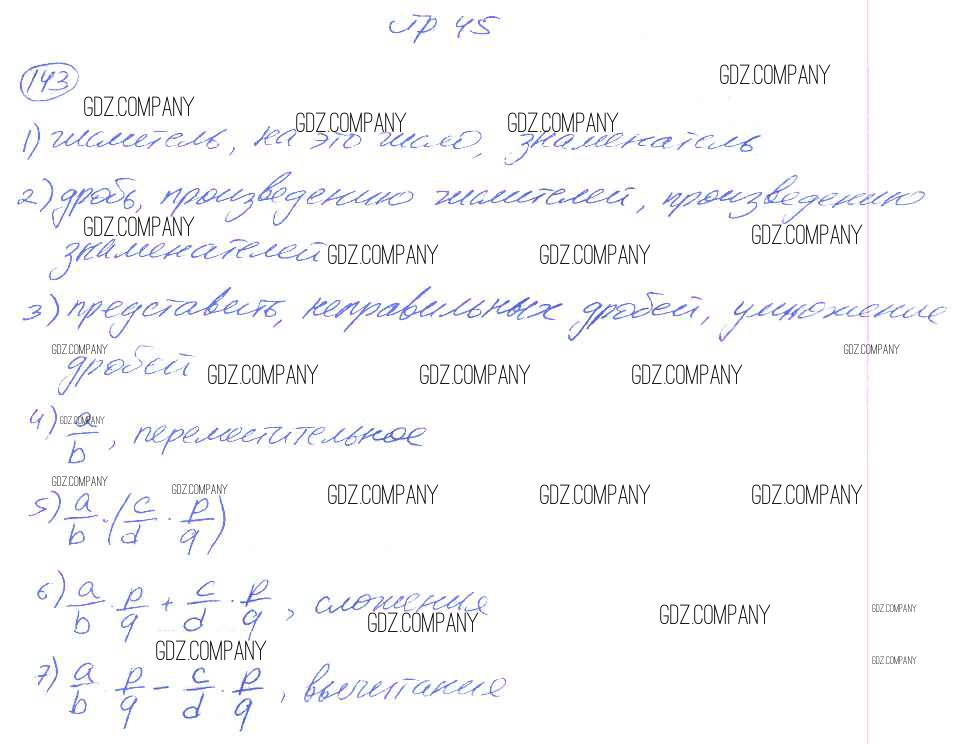 стр 45
143
GDZ.COMPANY
GDZ.COMPANY
GDZ.COMPANY GDZ.COMPANY
1) числитель, на это число, знаменатель
2) дробь, произведению числителей, произведению
GDZ.COMPANY GDZ.COMPANY
знаменателей GDZ.COMPANY GDZ.COMPANY
3) представить, неправильных дробей, умножение
GDZ.COMPANY GDZ.COMPANY
дробей GDZ.COMPANY GDZ.COMPANY GDZ.COMPANY
GDZ.COMPANY
4) a/b, переместительное
GDZ.COMPANY GDZ.COMPANY GDZ.COMPANY GDZ.COMPANY GDZ.COMPANY
5) a/b · (c/d · p/q)
6) a/b · p/q + c/d · p/q, сложения
GDZ.COMPANY GDZ.COMPANY GDZ.COMPANY
GDZ.COMPANY GDZ.COMPANY
7) a/b · p/q − c/d · p/q, вычитание